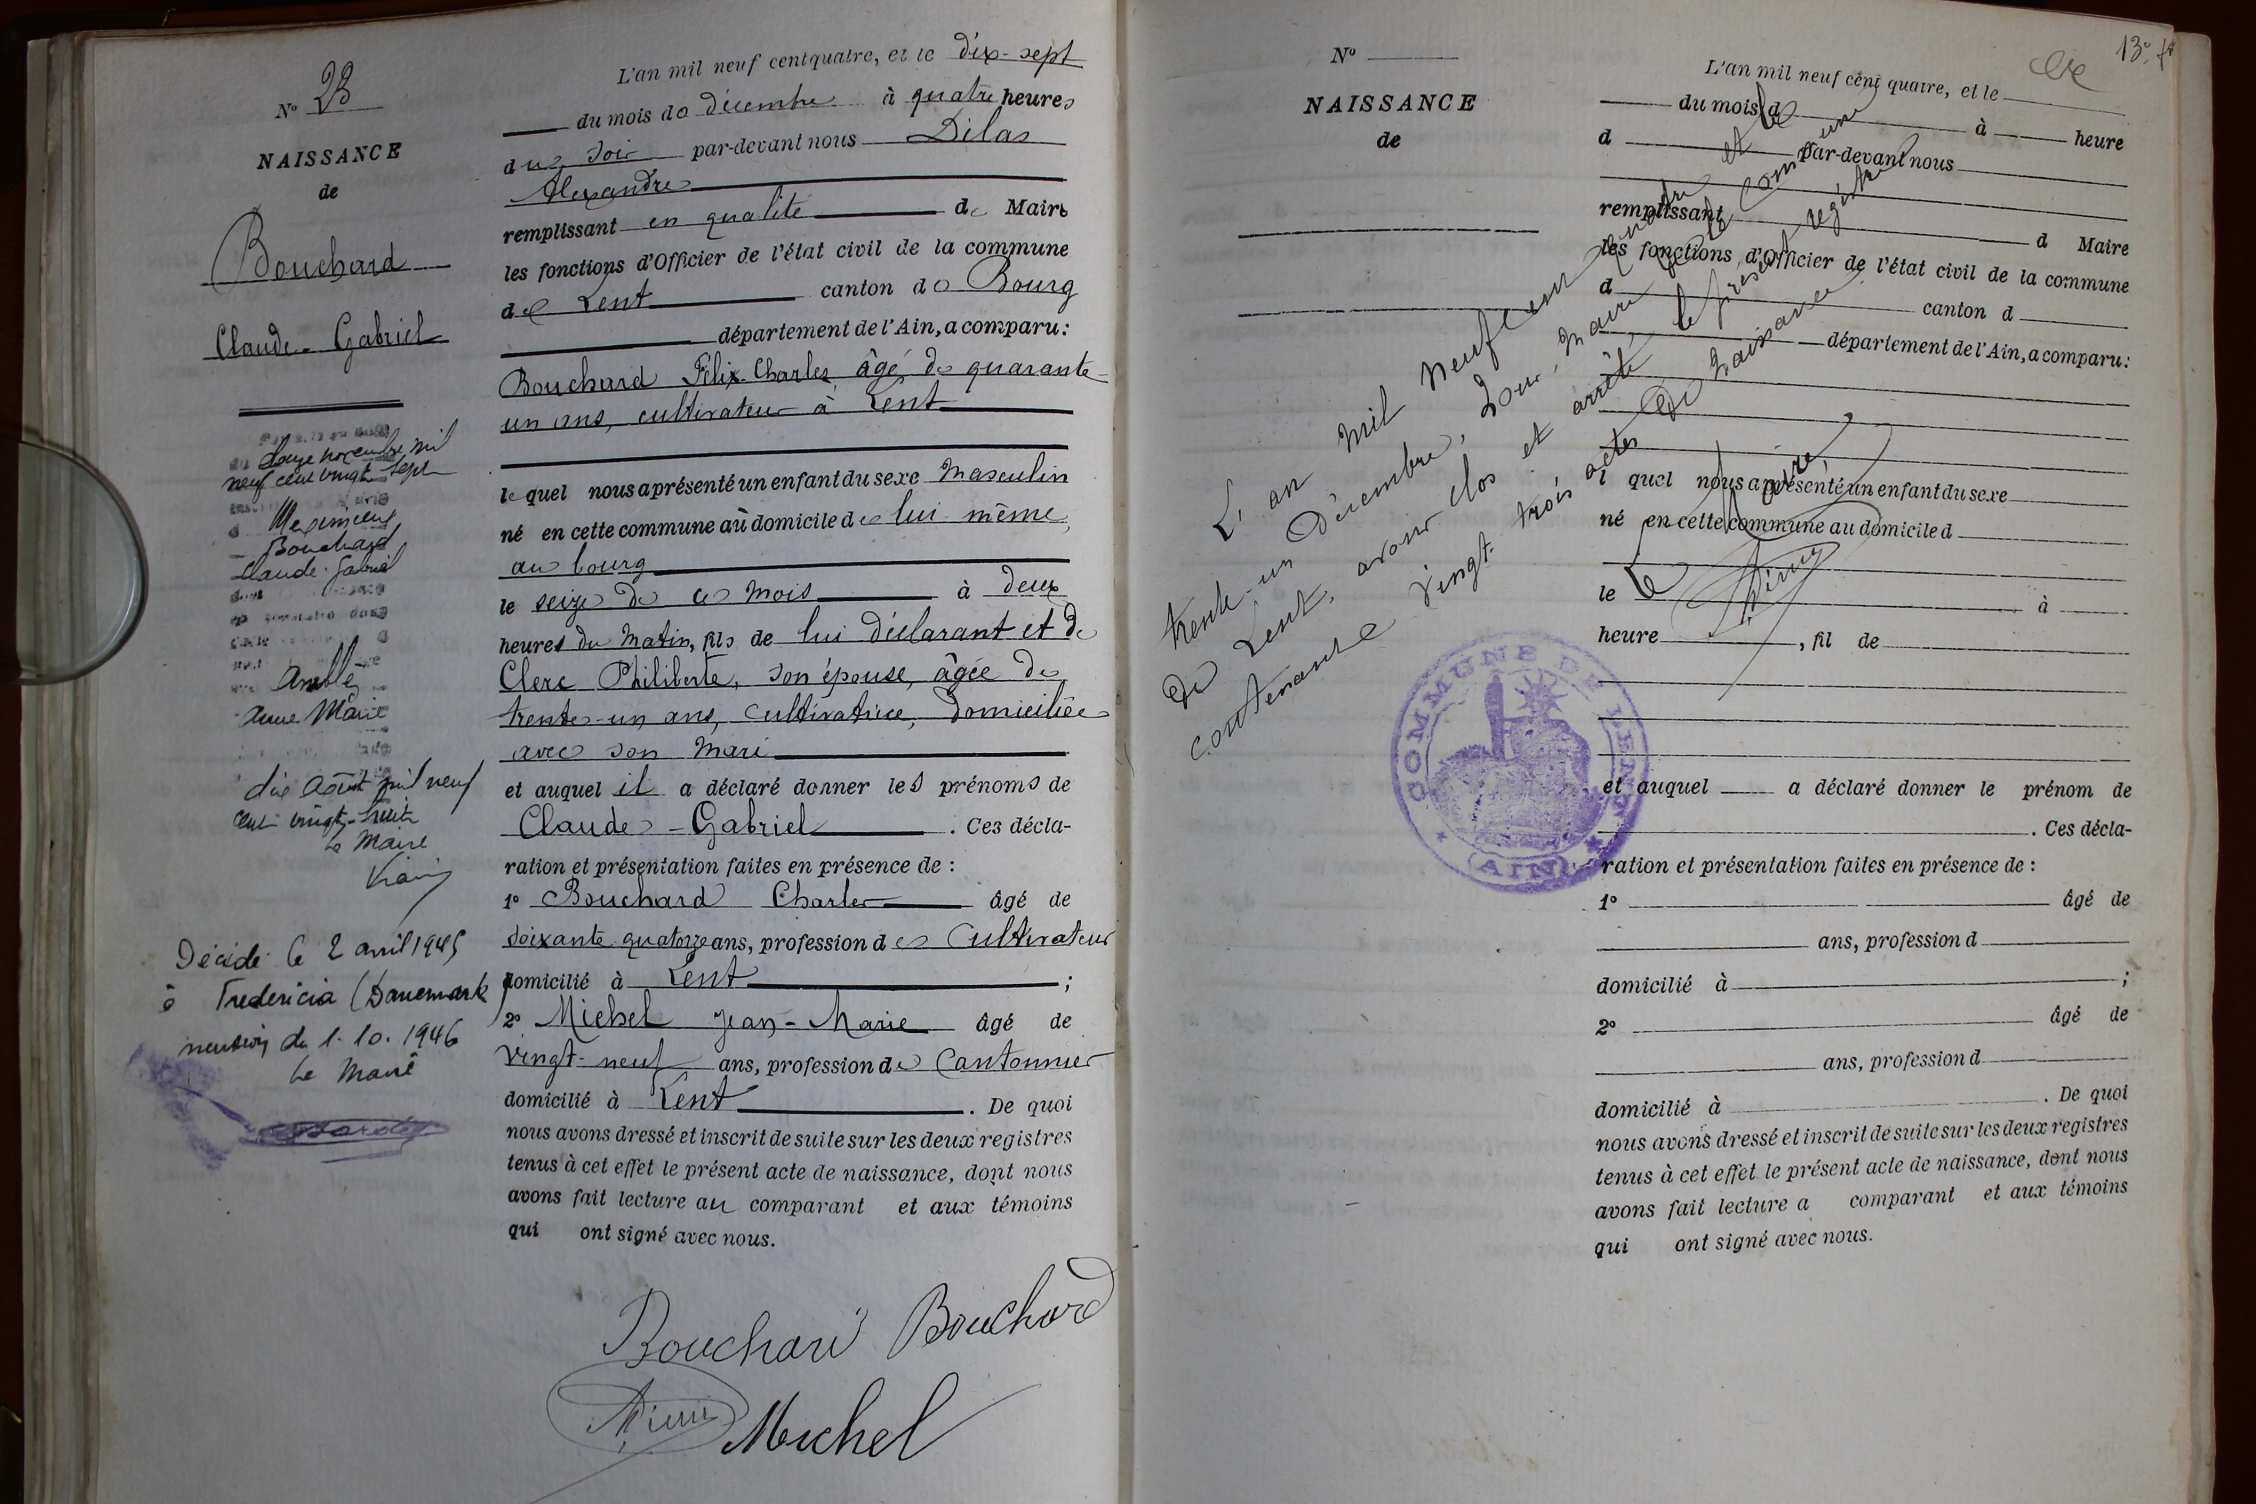 N° 23
NAISSANCE
de
Bouchard
Claude-Gabriel
douze novembre mil
neuf cent vingt-sept
Meximieux
Bouchard
Claude-Gabriel
Anne Marie
dix août mil neuf
cent vingt-huit
Le Maire
Décédé le 2 avril 1945
à Fredericia (Danemark)
mention du 1.10.1946
Le Maire
L'an mil neuf cent quatre, et le dix-sept
du mois de décembre à quatre heures
du soir par-devant nous Dilas
Alexandre
remplissant en qualité de Maire
les fonctions d'Officier de l'état civil de la commune
de Lent canton de Bourg
département de l'Ain, a comparu:
Bouchard Félix-Charles, âgé de quarante-
un ans, cultivateur à Lent
lequel nous a présenté un enfant du sexe masculin
né en cette commune au domicile de lui même,
au bourg
le seize de ce mois à deux
heures du matin, fils de lui déclarant et de
Clerc Philiberte, son épouse, âgée de
trente-un ans, cultivatrice, domiciliée
avec son mari
et auquel il a déclaré donner les prénoms de
Claude-Gabriel . Ces décla-
ration et présentation faites en présence de :
1° Bouchard Charles âgé de
soixante quatorze ans, profession de cultivateur
domicilié à Lent ;
2° Michel Jean-Marie âgé de
vingt-neuf ans, profession de cantonnier
domicilié à Lent . De quoi
nous avons dressé et inscrit de suite sur les deux registres
tenus à cet effet le présent acte de naissance, dont nous
avons fait lecture au comparant et aux témoins
qui ont signé avec nous.
Bouchard Bouchard
Michel
13e ft
N°
NAISSANCE
de
L'an mil neuf cent quatre, et le
du mois d à heure
d par-devant nous
remplissant d Maire
les fonctions d'Officier de l'état civil de la commune
d canton d
département de l'Ain, a comparu:
l quel nous a présenté un enfant du sexe
né en cette commune au domicile d
le à
heure , fil de
et auquel a déclaré donner le prénom de
. Ces décla-
ration et présentation faites en présence de :
1° âgé de
ans, profession d
domicilié à ;
2° âgé de
ans, profession d
domicilié à . De quoi
nous avons dressé et inscrit de suite sur les deux registres
tenus à cet effet le présent acte de naissance, dont nous
avons fait lecture a comparant et aux témoins
qui ont signé avec nous.
L'an mil neuf cent quatre et le
trente-un Décembre, Nous, Maire de la commune
de Lent, avons clos et arrêté, le présent registre
contenant vingt-trois actes de naissance
Le Maire,
COMMUNE DE LENT
(AIN)